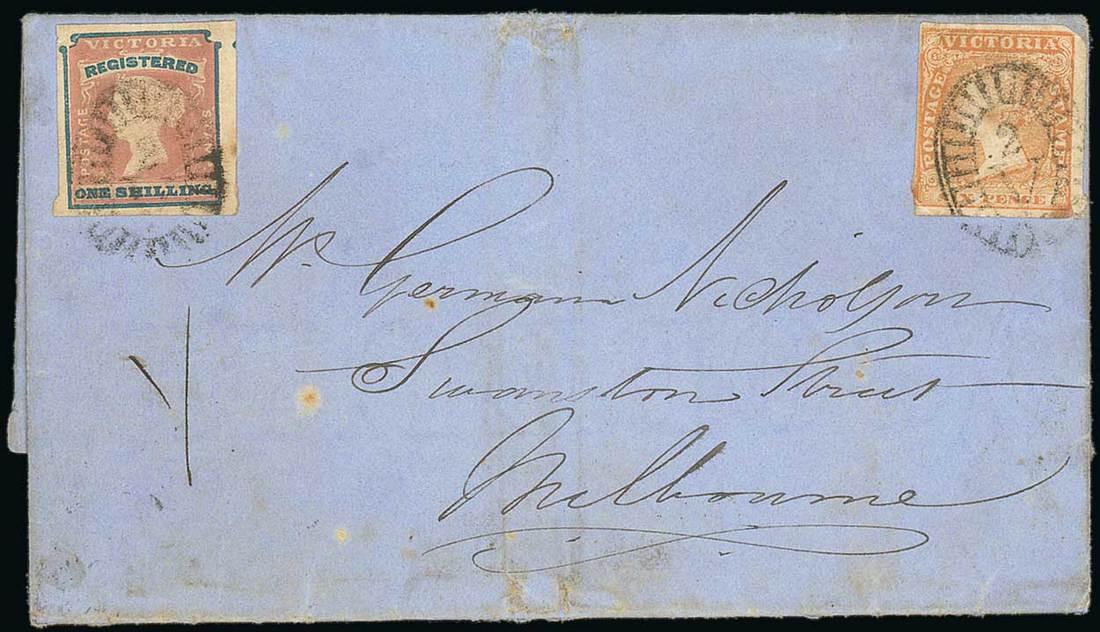 VICTORIA
REGISTERED
POSTAGE STAMP
ONE SHILLING
VICTORIA
POSTAGE STAMP
PENCE
2
V
Mr. German Nicholson
Swanston Street
Melbourne